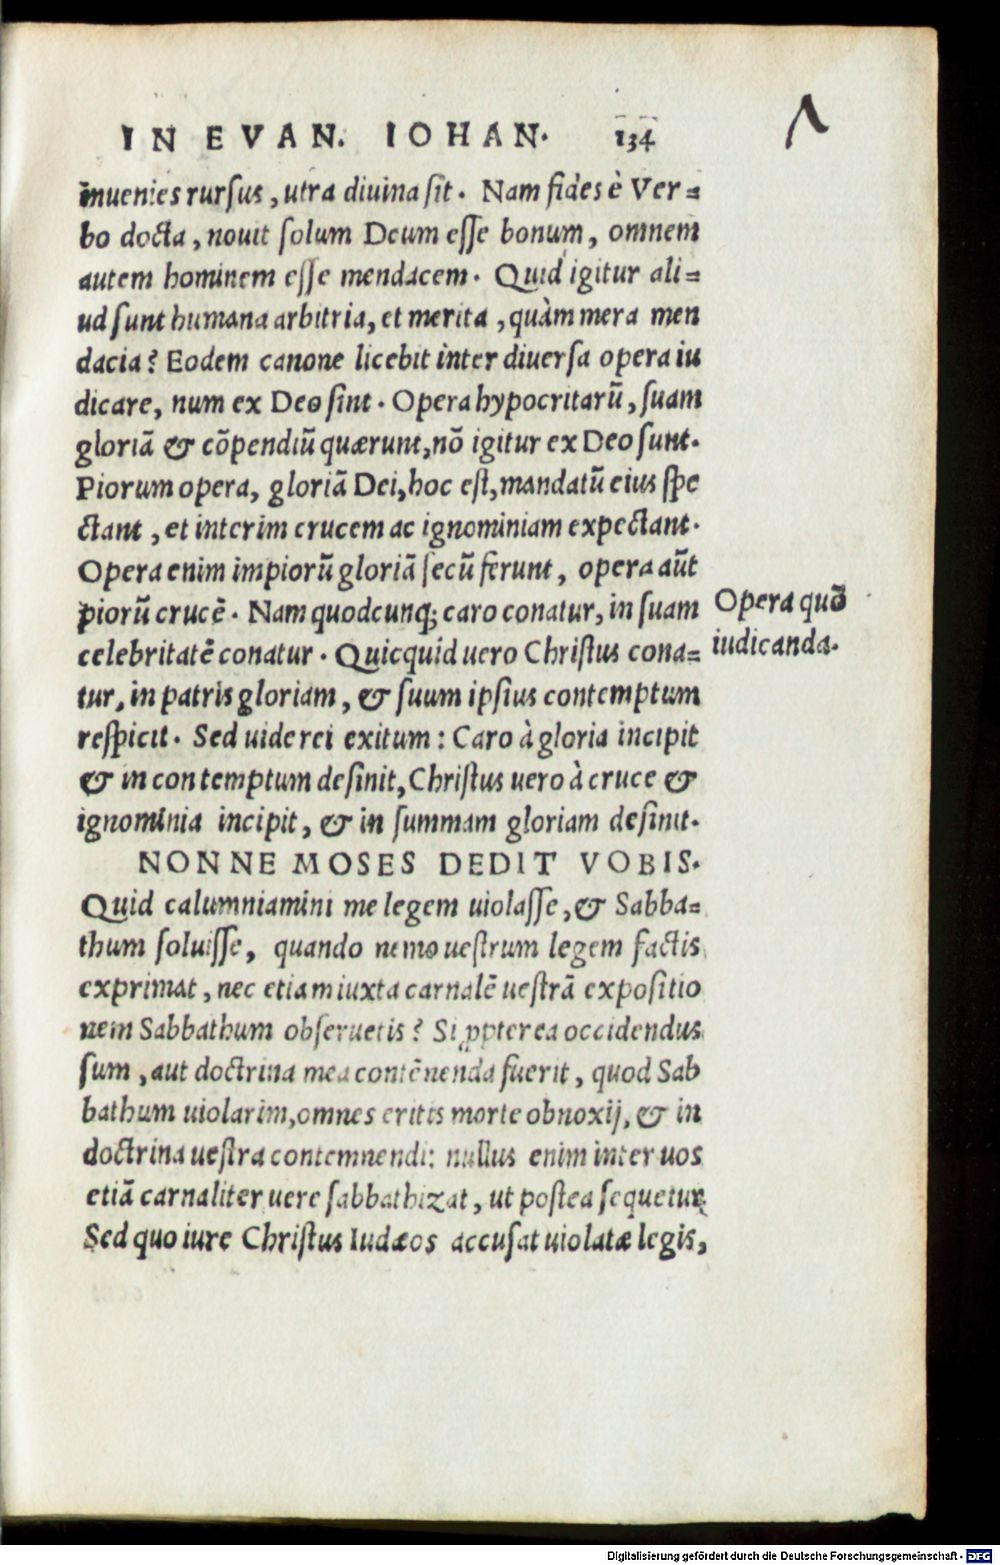 IN EVAN. IOHAN. 134
inuenies rursus, utra diuina sit. Nam fides è Ver=
bo docta, nouit solum Deum esse bonum, omnem
autem hominem esse mendacem. Quid igitur ali=
ud sunt humana arbitria, et merita, quàm mera men
dacia? Eodem canone licebit inter diuersa opera iu
dicare, num ex Deo sint. Opera hypocritarũ, suam
gloriã & cõpendiũ quærunt, nõ igitur ex Deo sunt.
Piorum opera, gloriã Dei, hoc est, mandatũ eius spe
ctant, et interim crucem ac ignominiam expectant.
Opera enim impiorũ gloriã secũ ferunt, opera aũt
piorũ crucẽ. Nam quodcunq; caro conatur, in suam
celebritatẽ conatur. Quicquid uero Christus cona=
tur, in patris gloriam, & suum ipsius contemptum
respicit. Sed uide rei exitum: Caro à gloria incipit
& in contemptum desinit, Christus uero à cruce &
ignominia incipit, & in summam gloriam desinit.
Opera quõ
iudicanda.
NONNE MOSES DEDIT VOBIS.
Quid calumniamini me legem uiolasse, & Sabba=
thum soluisse, quando nemo uestrum legem factis
exprimat, nec etiam iuxta carnalẽ uestrã expositio
nem Sabbathum obseruetis? Si ꝓpterea occidendus
sum, aut doctrina mea contẽnenda fuerit, quod Sab
bathum uiolarim, omnes eritis morte obnoxij, & in
doctrina uestra contemnendi: nullus enim inter uos
etiã carnaliter uere sabbathizat, ut postea sequetur.
Sed quo iure Christus Iudæos accusat uiolatæ legis,
Digitalisierung gefördert durch die Deutsche Forschungsgemeinschaft - DFG